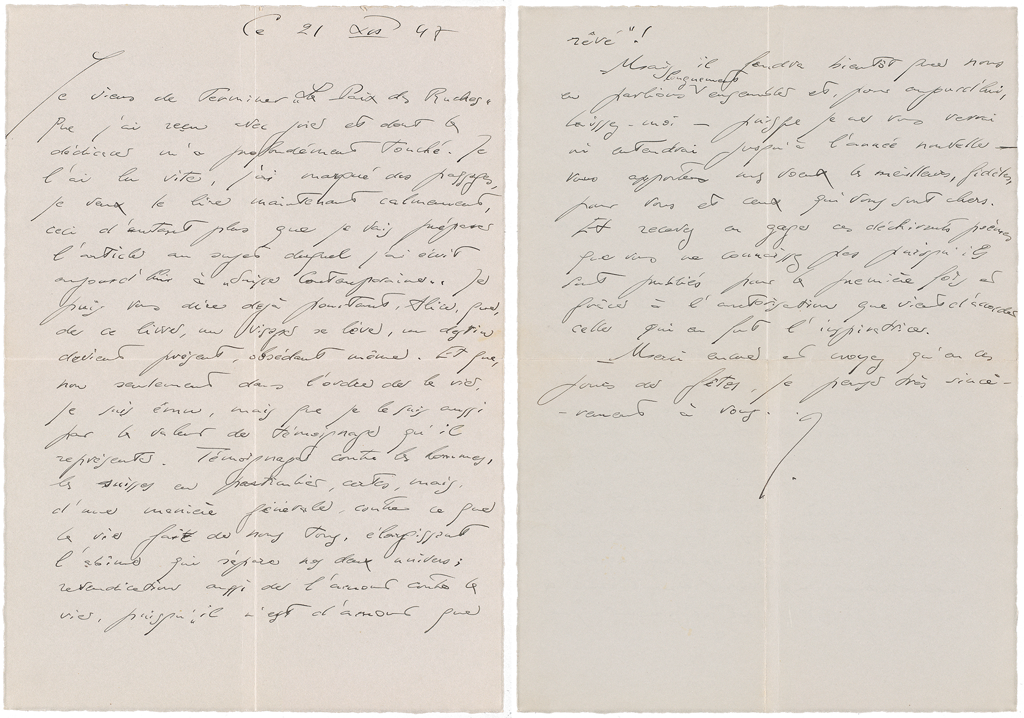 Ce 21 XII 47
Je viens de terminer "La Paix des Ruches"
que j'ai reçu avec joie et dont la
dédicace m'a profondément touché. Je
l'ai lu vite, j'ai marqué des passages,
je veux le lire maintenant calmement,
ceci d'autant plus que je vais préparer
l'article au sujet duquel j'ai écrit
aujourd'hui à "Suisse Contemporaine". Je
puis vous dire déjà pourtant, Alice, que,
de ce livre, un visage se lève, un destin
devient présent, obsédant même. Et que,
non seulement dans l'ordre de la vie,
je suis ému, mais que je le suis aussi
par la valeur de témoignage qu'il
représente. Témoignage contre les hommes,
les suisses en particulier, certes, mais,
d'une manière générale, contre ce que
la vie fait de nous tous, élargissant
l'abîme qui sépare nos deux univers ;
revendication aussi de l'amour contre la
vie, puisqu'"il n'est d'amour que
rêvé"!
Mais il faudra bientôt que nous
en parlions longuement ensemble et, pour aujourd'hui,
laissez-moi — puisque je ne vous verrai
ni entendrai jusqu'à l'année nouvelle —
vous apporter mes voeux les meilleurs, fidèles,
pour vous et ceux qui vous sont chers.
Et recevez en gage ces déchirants poèmes
que vous ne connaissez pas puisqu'ils
sont publiés pour la première fois et
grâce à l'autorisation que vient d'accorder
celle qui en fut l'inspiratrice.
Merci encore et croyez qu'en ces
jours de fêtes, je pense très sincè-
-rement à vous.